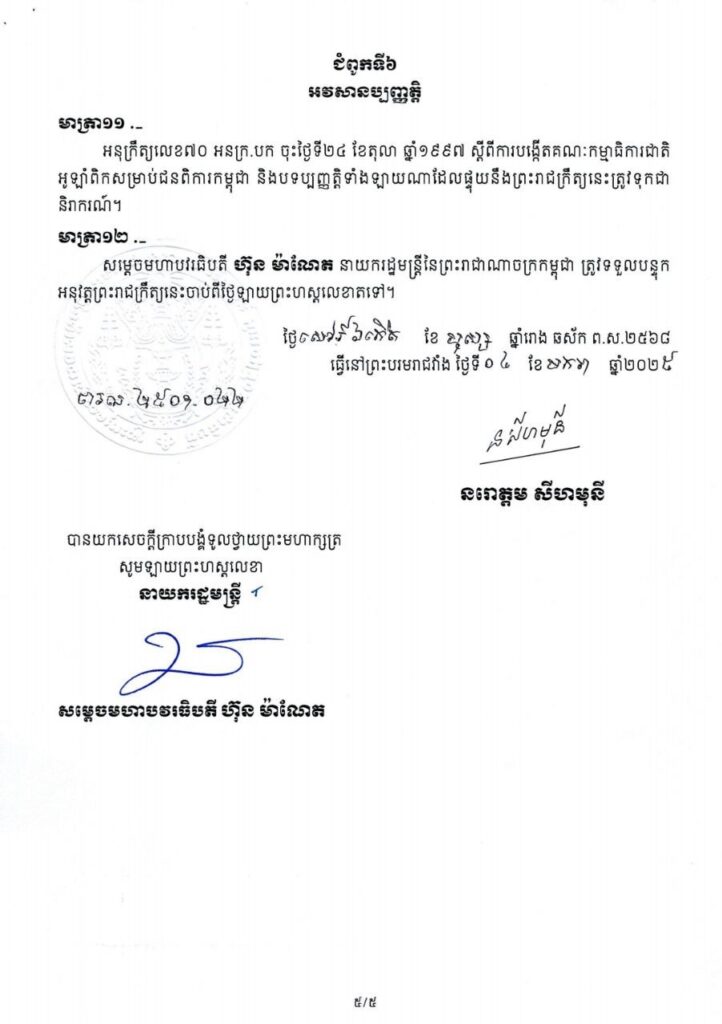 ជំពូកទី៦
អវសានប្បញ្ញត្តិ
មាត្រា១១ ._
អនុក្រឹត្យលេខ៧០ អនក្រ.បក ចុះថ្ងៃទី២៤ ខែតុលា ឆ្នាំ១៩៩៧ ស្តីពីការបង្កើតគណៈកម្មាធិការជាតិ
អូឡាំពិកសម្រាប់ជនពិការកម្ពុជា និងបទប្បញ្ញត្តិទាំងឡាយណាដែលផ្ទុយនឹងព្រះរាជក្រឹត្យនេះត្រូវទុកជា
និរាករណ៍។
មាត្រា១២ ._
សម្តេចមហាបវរធិបតី ហ៊ុន ម៉ាណែត នាយករដ្ឋមន្ត្រីនៃព្រះរាជាណាចក្រកម្ពុជា ត្រូវទទួលបន្ទុក
អនុវត្តព្រះរាជក្រឹត្យនេះចាប់ពីថ្ងៃឡាយព្រះហស្តលេខាតទៅ។
ថ្ងៃសៅរ៍ ៥កើត ខែ បុស្ស ឆ្នាំរោង ឆស័ក ព.ស.២៥៦៨
ធ្វើនៅព្រះបរមរាជវាំង ថ្ងៃទី០៤ ខែ មករា ឆ្នាំ២០២៥
ពារល. ២៥០១.០២២
ន សីហមុនី
នរោត្តម សីហមុនី
បានយកសេចក្តីក្រាបបង្គំទូលថ្វាយព្រះមហាក្សត្រ
សូមឡាយព្រះហស្តលេខា
នាយករដ្ឋមន្ត្រី
សម្តេចមហាបវរធិបតី ហ៊ុន ម៉ាណែត
៥/៥